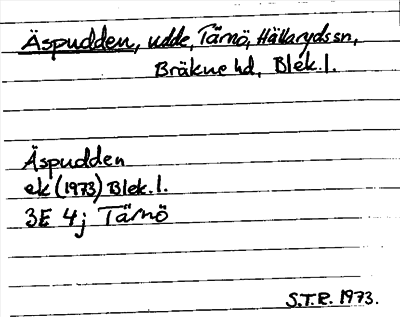 Äspudden, udde, Tärnö, Hällarydssn,
Bräkne hd, Blek.l.
Äspudden
ek (1973) Blek.l.
3E 4j Tärnö
S.T.R. 1973.